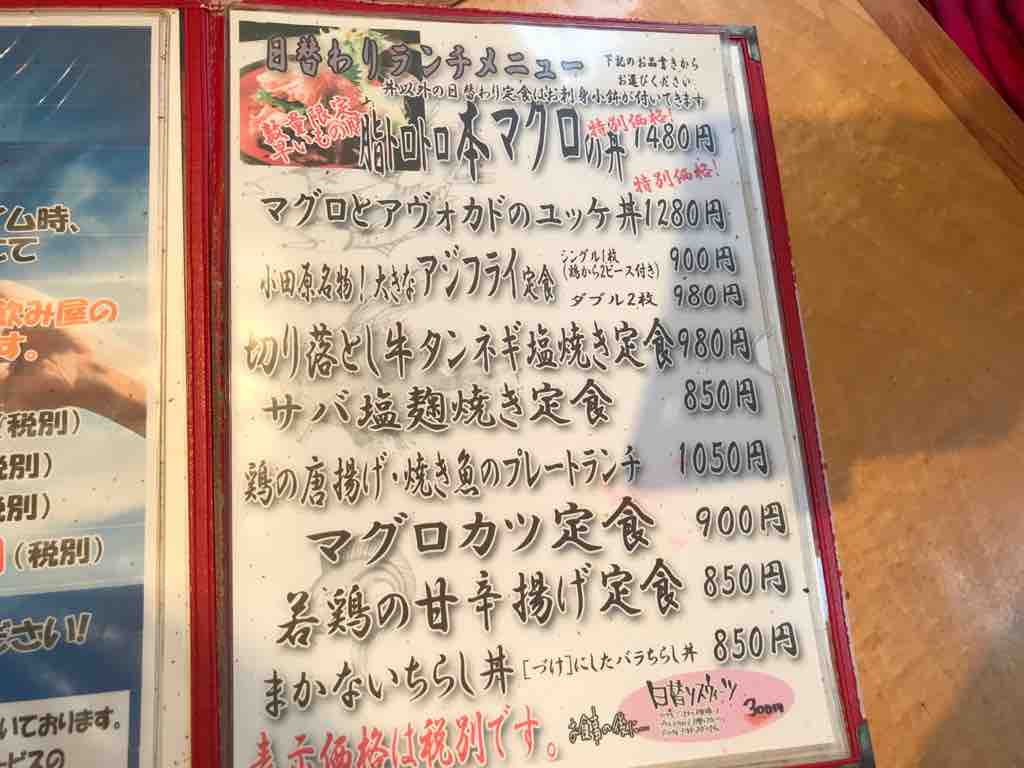 イム時、
飲み屋の
す。
(税別)
税別)
税別)
(税別)
ださい!
いております。
日替わりランチメニュー
下記のお品書きから
お選びください
丼以外の日替わり定食はお刺身小鉢が付いてきます
数量限定
早いもの勝
脂トロトロ本マグロの丼 特別価格! 1480円
特別価格!
マグロとアヴォカドのユッケ丼 1280円
小田原名物!大きなアジフライ定食
シングル1枚 900円
(鶏から2ピース付き)
ダブル2枚 980円
切り落とし牛タンネギ塩焼き定食 980円
サバ塩麹焼き定食 850円
鶏の唐揚げ・焼き魚のプレートランチ 1050円
マグロカツ定食 900円
若鶏の甘辛揚げ定食 850円
まかないちらし丼 [づけ]にしたバラちらし丼 850円
表示価格は税別です。
お食事の後に…
日替りスウィーツ
300円